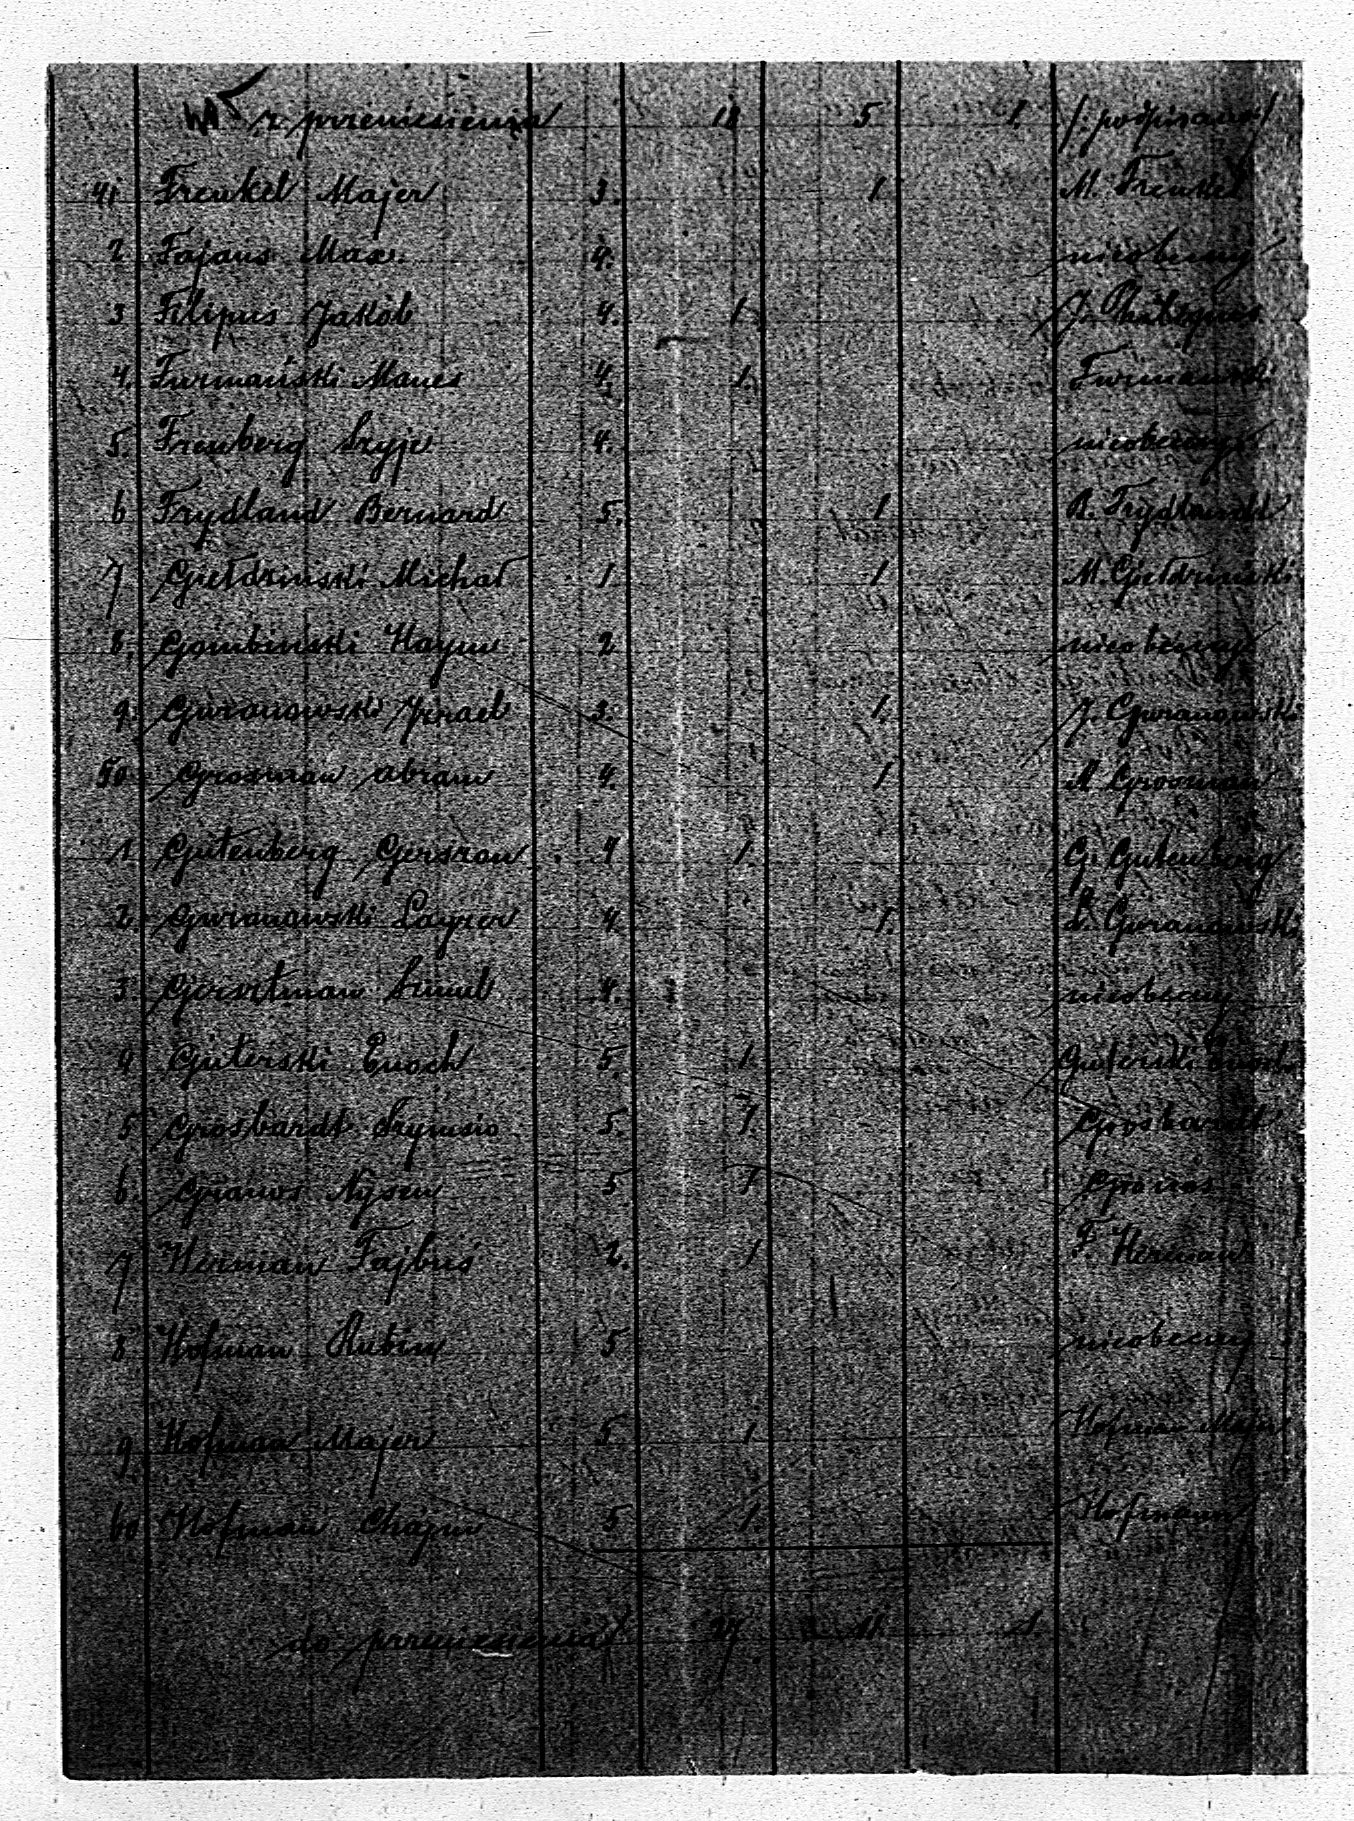 z przeniesienia 18 5 1. /: podpisano :/
41 Frenkel Majer 3. 1. M. Frenkel
2 Fajans Max 4. nieobecny
3 Filipus Jakób 4. 1. J. Philippus
4. Furmański Manes 4. 1. Furmański
5. Frenberg Szyje 4. nieobecny
6 Frydland Bernard 5. 1 B. Frydlandt
7 Giełdziński Michał 1 1 M. Giełdziński
8. Gombinski Haym 2 nieobecny
9. Guranowski Izrael 3. 1. J. Guranowski
50. Grosman Abram 4. 1 A Groosman
1. Gutenberg Gerszon 4 1. G. Gutenberg
2. Guranowski Layzer 4. 1. L. Guranowski
3. Gersztman Szmul 4. nieobecny
4 Guterski Enoch 5. 1. Guterski Enoch
5 Grosbardt Szymsio 5. 1. Grosbardt
6. Granos Nysen 5 1 Granos
7 Herman Fajbuś 2. 1 F. Herman
8 Hofman Rubin 5 nieobecny
9. Hofman Majer 5 1. Hofman Majer
60 Hofman Chajm 5 1. Hofmann
do przeniesienia 27 11. 1.